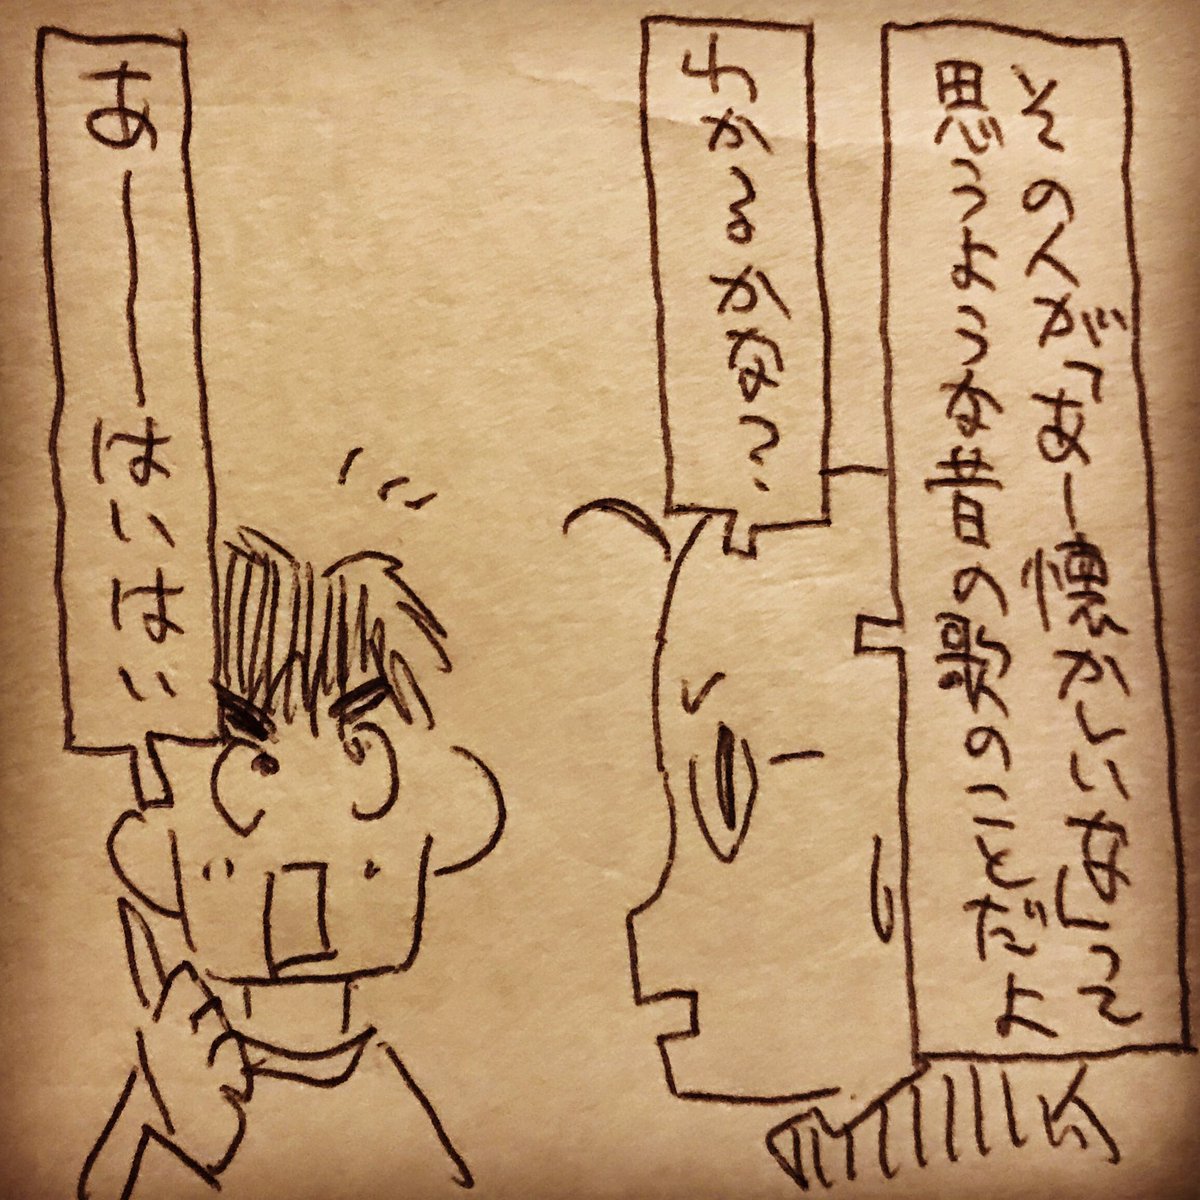 その人が「あー懐かしいな」って
思うような昔の歌のことだよ
わかるかな？
あーーはいはい